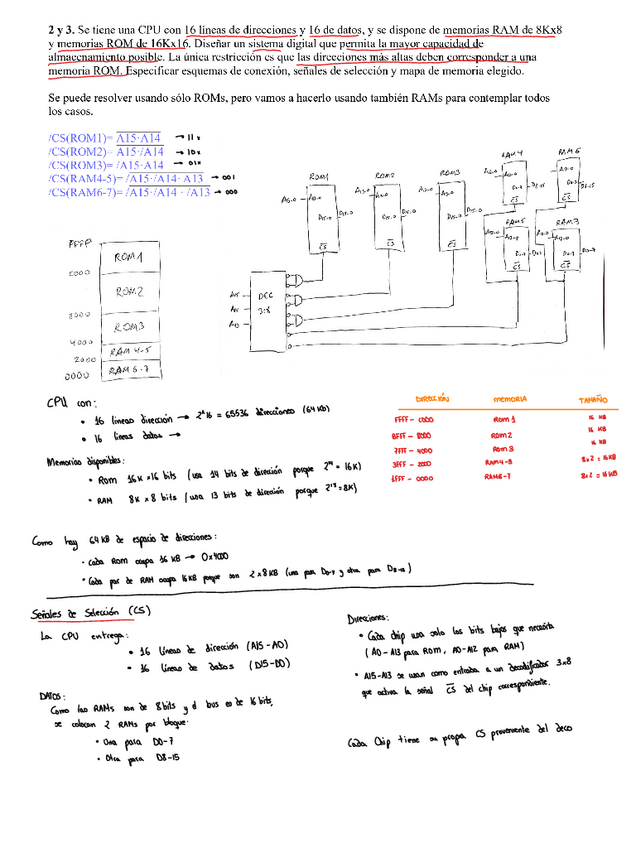 2 y 3. Se tiene una CPU con 16 líneas de direcciones y 16 de datos, y se dispone de memorias RAM de 8Kx8
y memorias ROM de 16Kx16. Diseñar un sistema digital que permita la mayor capacidad de
almacenamiento posible. La única restricción es que las direcciones más altas deben corresponder a una
memoria ROM. Especificar esquemas de conexión, señales de selección y mapa de memoria elegido.
Se puede resolver usando sólo ROMs, pero vamos a hacerlo usando también RAMs para contemplar todos
los casos.
/CS(ROM1)= A15·A14 → 11x
/CS(ROM2)= A15·/A14 → 10x
/CS(ROM3)= /A15·A14 → 01x
/CS(RAM4-5)= /A15·/A14· A13 → 001
/CS(RAM6-7)= /A15·/A14 · /A13 → 000
ROM1 ROM2 ROM3 RAM4 RAM6
RAM5 RAM7
CS CS CS CS CS
DEC
3:8
FFFF
ROM1
ROM2
8000
ROM3
4000
RAM 4-5
2000
RAM 6-7
0000
CPU con:
• 16 lineas dirección → 2^16 = 65536 direcciones (64 KB)
• 16 lineas datos →
Memorias disponibles:
• Rom 16K × 16 bits (usa 14 bits de dirección porque 2^14 = 16K)
• RAM 8K × 8 bits (usa 13 bits de dirección porque 2^13 = 8K)
DIRECCIÓN MEMORIA TAMAÑO
FFFF - C000 Rom 1 16 KB
BFFF - 8000 Rom 2 16 KB
7FFF - 4000 Rom 3 16 KB
3FFF - 2000 RAM4-5 8x2 = 16KB
1FFF - 0000 RAM6-7 8x2 = 16KB
Como hay 64 KB de espacio de direcciones:
• Cada Rom ocupa 16 KB → 0x4000
• Cada par de RAM ocupa 16KB porque son 2 x 8KB (una para D0-7 y otra para D8-15)
Señales de Selección (CS)
La CPU entrega:
• 16 líneas de dirección (A15-A0)
• 16 líneas de datos (D15-D0)
DATOS:
Como las RAMs son de 8 bits y el bus es de 16 bits,
se colocan 2 RAMs por bloque:
• Una para D0-7
• Otra para D8-15
Direcciones:
• Cada chip usa solo los bits bajos que necesita
(A0-A13 para ROM, A0-A12 para RAM)
• A15-A13 se usan como entrada a un decodificador 3x8
que activa la señal CS del chip correspondiente.
Cada Chip tiene su propia CS proveniente del deco